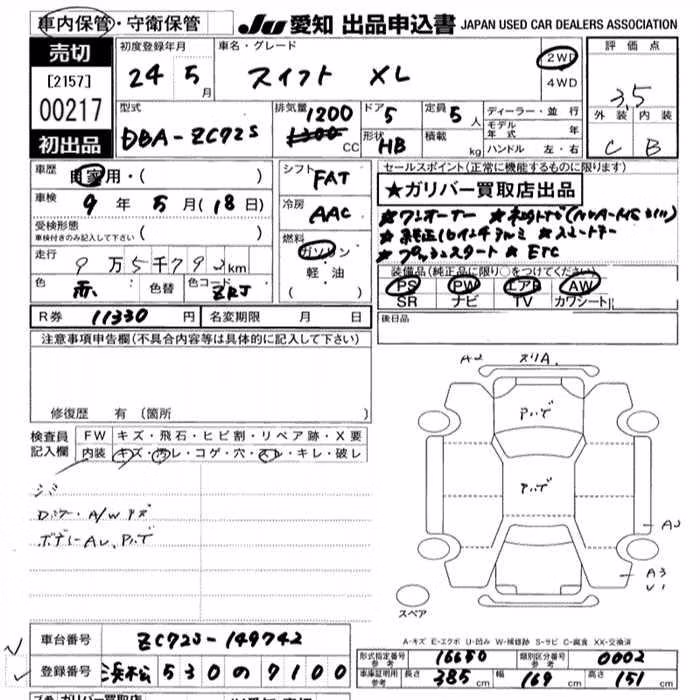 車内保管・守衛保管
JU 愛知 出品申込書 JAPAN USED CAR DEALERS ASSOCIATION
売切
[2157]
00217
初出品
初度登録年月
24 5 月
車名・グレード
スイフト XL
2WD
4WD
評価点
3.5
外装 内装
C B
型式
DBA-ZC72S
排気量
1200
1300 CC
ドア 5
形状 HB
定員 5 人
積載 kg
ディーラー・並行
モデル年式 年
ハンドル 左・右
車歴 自家用・( )
車検 9 年 5 月(18日)
受検形態
車検付きのみ記入して下さい ( )
走行
9万5千793km
色 赤 色替 色コード ZRJ
シフト
FAT
冷房
AAC
燃料
ガソリン
軽・油
( )
セールスポイント(正常に機能するものに限ります)
★ガリバー買取店出品
★ワンオーナー ★
★純正16インチアルミ ★スマートキー
★プッシュスタート ★ETC
装備品(純正品に限り○をつけてください)
PS PW エアB AW
SR ナビ TV カワシート
R券 11330 円 名変期限 月 日
後日品
注意事項申告欄(不具合内容等は具体的に記入して下さい)
修復歴 有 (箇所 )
検査員
記入欄
FW キズ・飛石・ヒビ割・リペア跡・X要
内装 キズ・汚レ・コゲ・穴・スレ・キレ・破レ
シミ
A/Wキズ
ボデーAU、
A2
A
A2
A3
U1
スペア
A-キズ E-エクボ U-凹み W-補修跡 S-サビ C-腐食 XX-交換済
車台番号 ZC72S-149742
登録番号 浜松 530 の 9100
形式指定番号 参考 16650 類別区分番号 参考 0002
車庫証明用 参考 長さ 385 cm 幅 169 cm 高さ 151 cm
ガリバー買取店